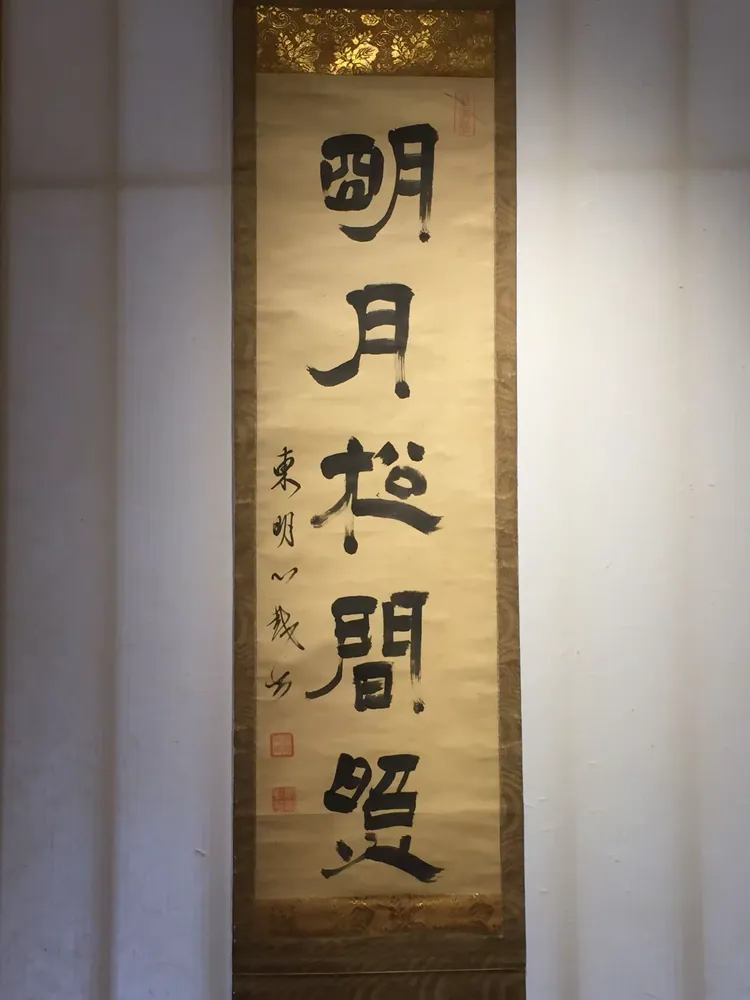 明月松間照
東明心越書